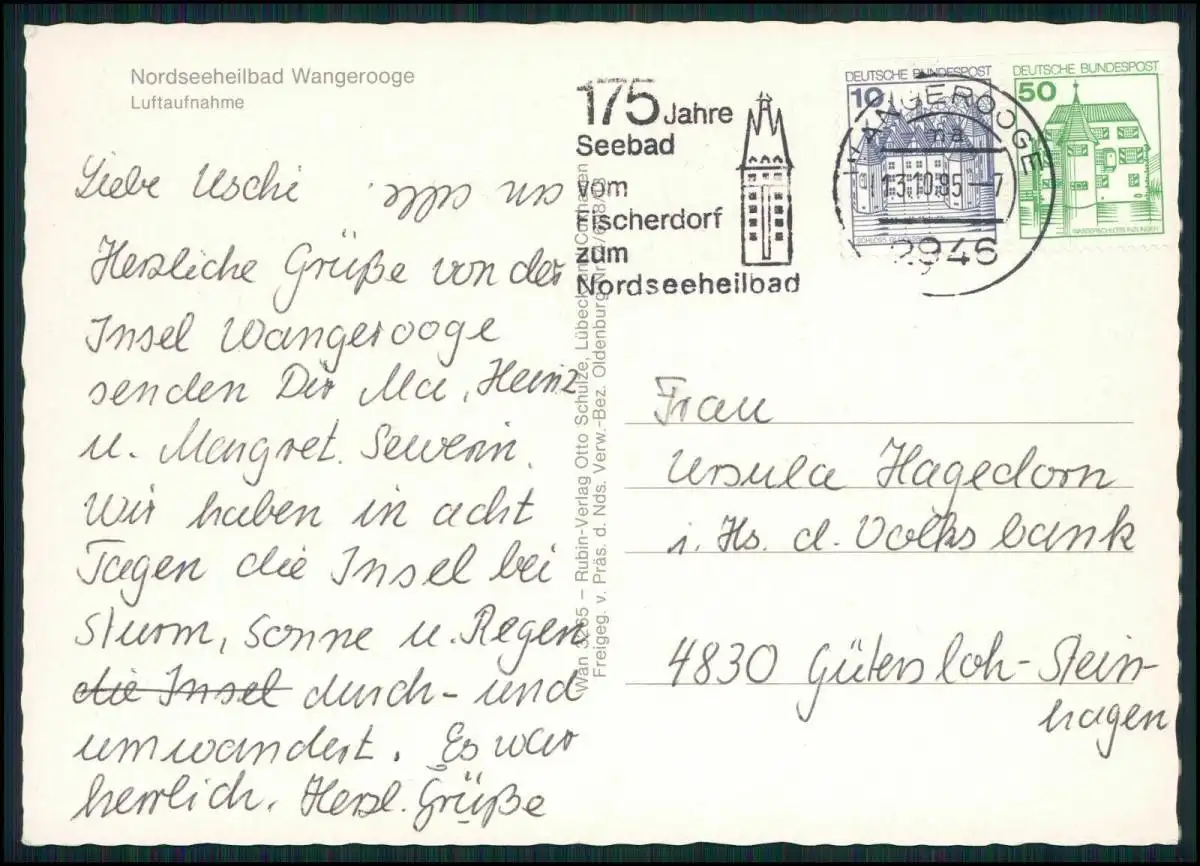 Nordseeheilbad Wangerooge
Luftaufnahme
Liebe Uschi
Herzliche Grüße von der
Insel Wangerooge
senden Dir Ma, Heinz
u. Mangret. Sewerin.
Wir haben in acht
Tagen die Insel bei
Sturm, Sonne u. Regen
die Insel durch- und
umwandert. Es war
herrlich. Herzl. Grüße
Wan 3265 – Rubin-Verlag Otto Schulze, Lübecken Cuxhaven
Freigeg. v. Präs. d. Nds. Verw.-Bez. Oldenburg Nr.
175 Jahre
Seebad
vom
Fischerdorf
zum
Nordseeheilbad
DEUTSCHE BUNDESPOST
10
DEUTSCHE BUNDESPOST
50
WASSERSCHLOSS INZLINGEN
WANGEROOGE
na
13.10.85 - 7
2946
Frau
Ursula Hagedorn
i. Hs. d. Volksbank
4830 Gütersloh-Stein-
hagen